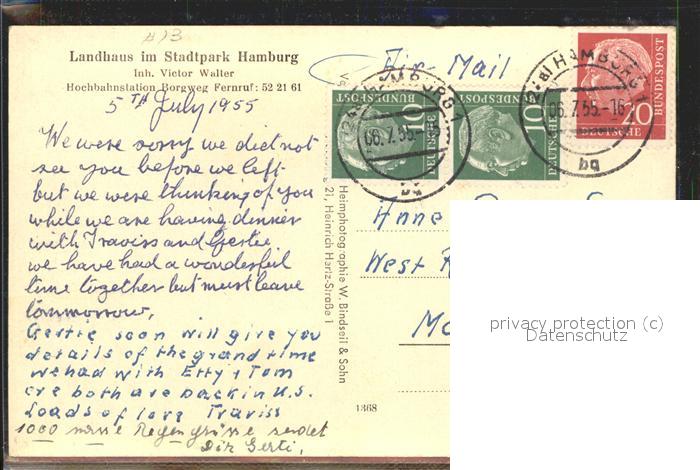 #13
Landhaus im Stadtpark Hamburg
Inh. Victor Walter
Hochbahnstation Borgweg Fernruf: 52 21 61
5TH July 1955
We were sorry we did not
see you before we left
but we were thinking of you
while we are having dinner
with Traviss and Gertie
we have had a wonderful
time together but must leave
tommorrow.
Gertie soon will give you
details of the grand time
we had with Etty + Tom
are both are back in U.S.
Loads of love Traviss
1000 nasse Regengrüsse sendet
Dir Gerti.
Air-Mail
HAMBURG 1
06.7.55.-16
bq
HAMBURG 1
06.7.55.-16
10
DEUTSCHE BUNDESPOST
10
DEUTSCHE BUNDESPOST
20
DEUTSCHE BUNDESPOST
Heimphotographie W. Bindseil & Sohn
21, Heinrich Hertz-Straße 1
Anne
West
1368
privacy protection (c)
Datenschutz